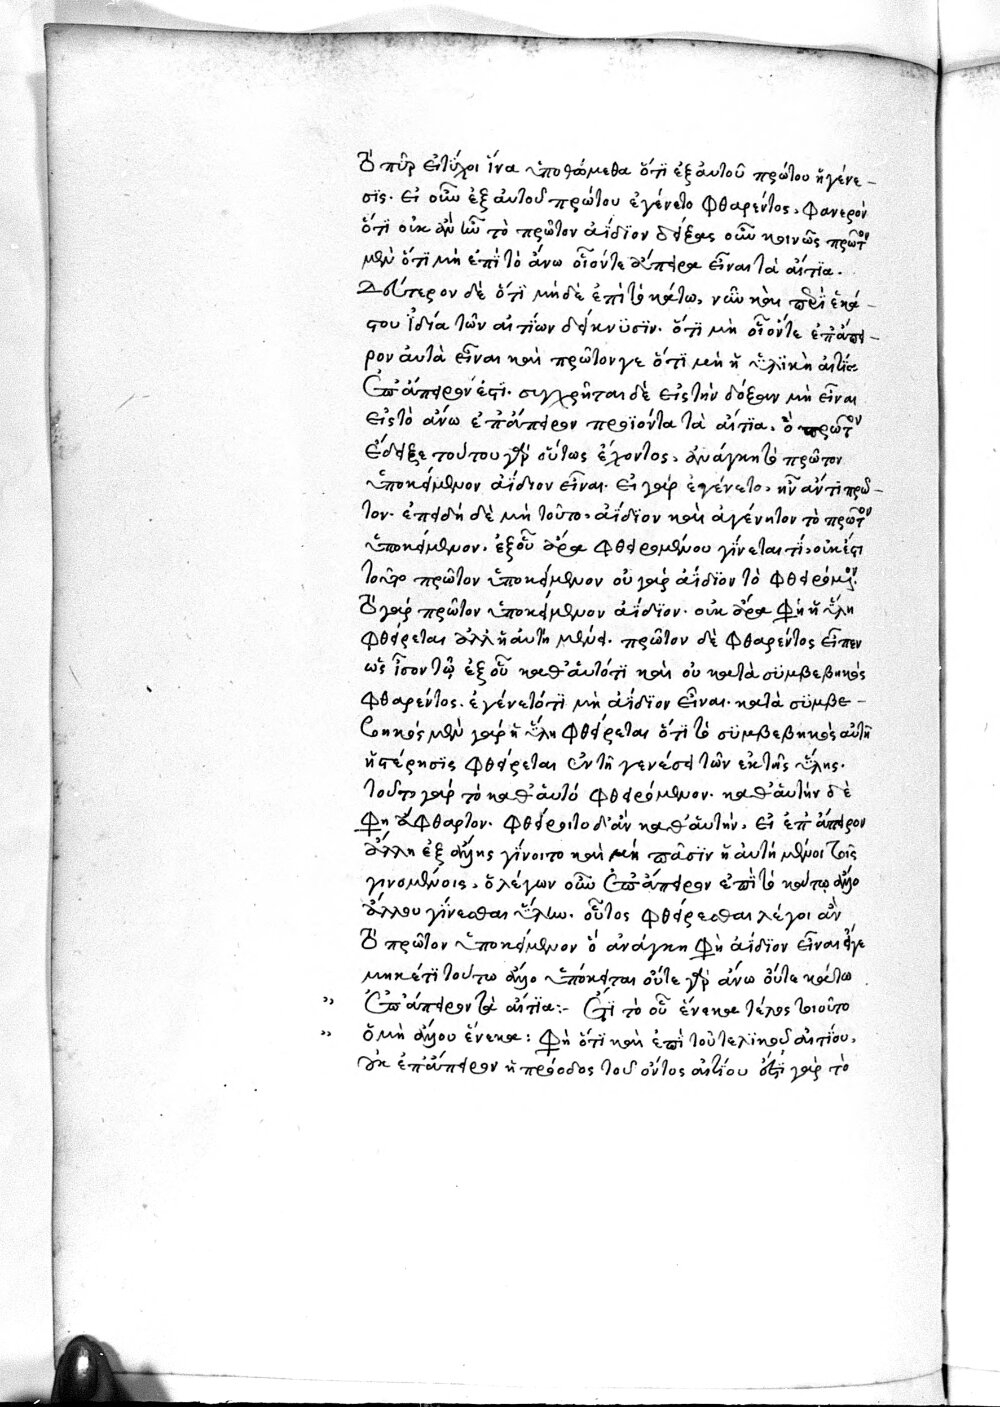 τὸ πῦρ εἰ τύχοι ἵνα ὑποθώμεθα ὅτι ἐξ αὐτοῦ πρώτου ἡ γένε-
σις. εἰ οὖν ἐξ αὐτοῦ πρώτου ἐγένετο φθαρέντος, φανερὸν
ὅτι οὐκ ἂν ἦν τὸ πρῶτον ἀΐδιον δείξας οὖν κοινῶς πρῶτον
μὲν ὅτι μὴ ἐπὶ τὸ ἄνω οἷόν τε ἄπειρα εἶναι τὰ αἴτια.
Δεύτερον δὲ ὅτι μηδὲ ἐπὶ τὸ κάτω, νῦν καὶ περὶ ἑκά-
στου ἰδία τῶν αἰτίων δείκνυσιν. ὅτι μὴ οἷόν τε ἐπ' ἄπει-
ρον αὐτὰ εἶναι καὶ πρῶτον γε ὅτι μὴ ἡ ὑλικὴ αἰτία
ἐπ' ἄπειρον ἐστι. συγχρῆται δὲ εἰς τὴν δόξαν μὴ εἶναι
εἰς τὸ ἄνω ἐπ' ἄπειρον προϊόντα τὰ αἴτια, ὃ πρῶτον
ἔδειξε τούτου γὰρ οὕτως ἔχοντος, ἀνάγκη τὸ πρῶτον
ὑποκείμενον ἀΐδιον εἶναι. εἰ γὰρ ἐγένετο, ἦν ἄν τι πρῶ-
τον. ἐπειδὴ δὲ μὴ τοῦτο, ἀΐδιον καὶ ἀγένητον τὸ πρῶτον
ὑποκείμενον, ἐξ οὗ ἄρα φθειρομένου γίνεταί τι, οὐκ ἔστι
τοῦτο πρῶτον ὑποκείμενον οὐ γὰρ ἀΐδιον τὸ φθειρόμενον.
τὸ γὰρ πρῶτον ὑποκείμενον ἀΐδιον. οὐκ ἄρα φησὶ ἡ ὕλη
φθείρεται ἀλλ' ἡ αὐτὴ μένει. πρῶτον δὲ φθαρέντος εἶπεν
ὡς ἴσον τῷ ἐξ οὗ καθ' αὑτό τι καὶ οὐ κατὰ συμβεβηκὸς
φθαρέντος, ἐγένετό τι μὴ ἀΐδιον εἶναι. κατὰ συμβε-
βηκὸς μὲν γὰρ ἡ ὕλη φθείρεται ὅτι τὸ συμβεβηκὸς αὐτῇ
ἡ στέρησις φθείρεται ἐν τῇ γενέσει τῶν ἐκ τῆς ὕλης.
τοῦτο γὰρ τὸ καθ' αὑτό φθειρόμενον. καθ' αὑτὴν δὲ
φησὶ ἄφθαρτον. φθείροιτο δ' ἂν καθ' αὑτήν, εἰ ἐπ' ἄπειρον
ἄλλη ἐξ ἄλλης γίνοιτο καὶ μὴ πᾶσιν ἡ αὐτὴ μένοι τοῖς
γινομένοις, ὁ λέγων οὖν ἐπ' ἄπειρον ἐπὶ τὸ κάτω ἄλλο
ἄλλου γίνεσθαι ὕλην. οὗτος φθείρεσθαι λέγοι ἂν
τὸ πρῶτον ὑποκείμενον ὃ ἀνάγκη φησὶ ἀΐδιον εἶναι εἴγε
μηκέτι τούτω ἄλλο ὑπόκειται οὔτε γὰρ ἄνω οὔτε κάτω
ἐπ' ἄπειρον τὰ αἴτια:- ἔτι τὸ οὗ ἕνεκα τέλος τοιοῦτο
ὃ μὴ ἄλλου ἕνεκα: φησὶ ὅτι καὶ ἐπὶ τοῦ τελικοῦ αἰτίου,
οὐκ ἐπ' ἄπειρον ἡ πρόοδος τοῦ ὄντος αἰτίου ὅτι γὰρ τὸ